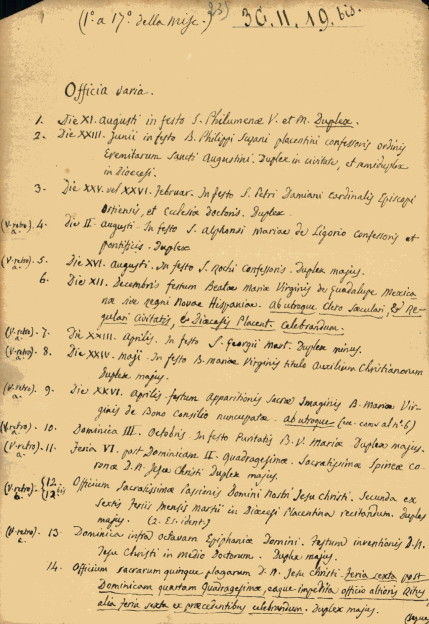 (1º. a 17º della Misc.) 30.II.19. bis.
Officia varia.
1. Die XI. Augusti in festo S. Philumenæ V. et M. Duplex.
2. Die XXIII. Junii in festo B. Philippi Suzani placentini confessoris ordinis
Eremitarum Sancti Augustini. Duplex in civitate, et semiduplex
in Diœcesi.
3. Die XXV. vel XXVI. Februar. In festo S. Petri Damiani Cardinalis Episcopi
Ostiensis, et Ecclesiæ Doctoris. Duplex.
(V. retro). a. 4. Die II. Augusti. In festo S. Alphonsi Mariæ de Ligorio Confessoris et
pontificis. Duplex
(V. retro). a. 5. Die XVI. Augusti. In festo S. Rochi Confessoris. Duplex majus.
6. Die XII. Decembris festum Beatæ Mariæ Virginis de Guadalupe Mexica
na sive Regni Novæ Hispaniæ. Ab utroque Clero sæculari, & Re-
gulari Civitatis, & Diœcesis Placent. Celebrandum.
(V. retro). a. 7. Die XXIII. Aprilis. In festo S. Georgii Mart. Duplex minus.
(V. retro). a. 8. Die XXIV. Maji. In festo B. Mariæ Virginis titulo Auxilium Christianorum
Duplex majus.
(V. retro). a. 9. Die XXVI. Aprilis. festum Apparitionis Sacræ Imaginis B. Mariæ Vir-
ginis de Bono Consilio nuncupatæ. ab utroque (ut conv. al nº. 6)
(V. retro). a. 10. Dominica III. Octobris. In festo Puritatis B. V. Mariæ Duplex majus.
(V. retro). a. 11. Feria VI. post Dominicam II. Quadragesimæ. Sacratissimæ Spineæ co-
ronæ D. N. Jesu Christi Duplex majus.
(V. retro). b. 12. 12 bis Officium Sacratissimæ Passionis Domini Nostri Jesu Christi. Secunda ex
sextis Feriis Mensis Martii in Diœcesi Placentina recitandum. Duplex
majus. (2. Es. ident.)
(V. retro). c. 13. Dominica infra octavam Epiphaniæ Domini. Festum inventionis D. N.
Jesu Christi in medio Doctorum. Duplex majus.
14. Officium sacrarum quinque plagarum D. N. Jesu Christi. Feria sexta post
Dominicam quartam Quadragesimæ, eaque impedita officio altioris Ritus,
alia feria sexta ex præcedentibus celebrandum. Duplex majus.
(Segue)